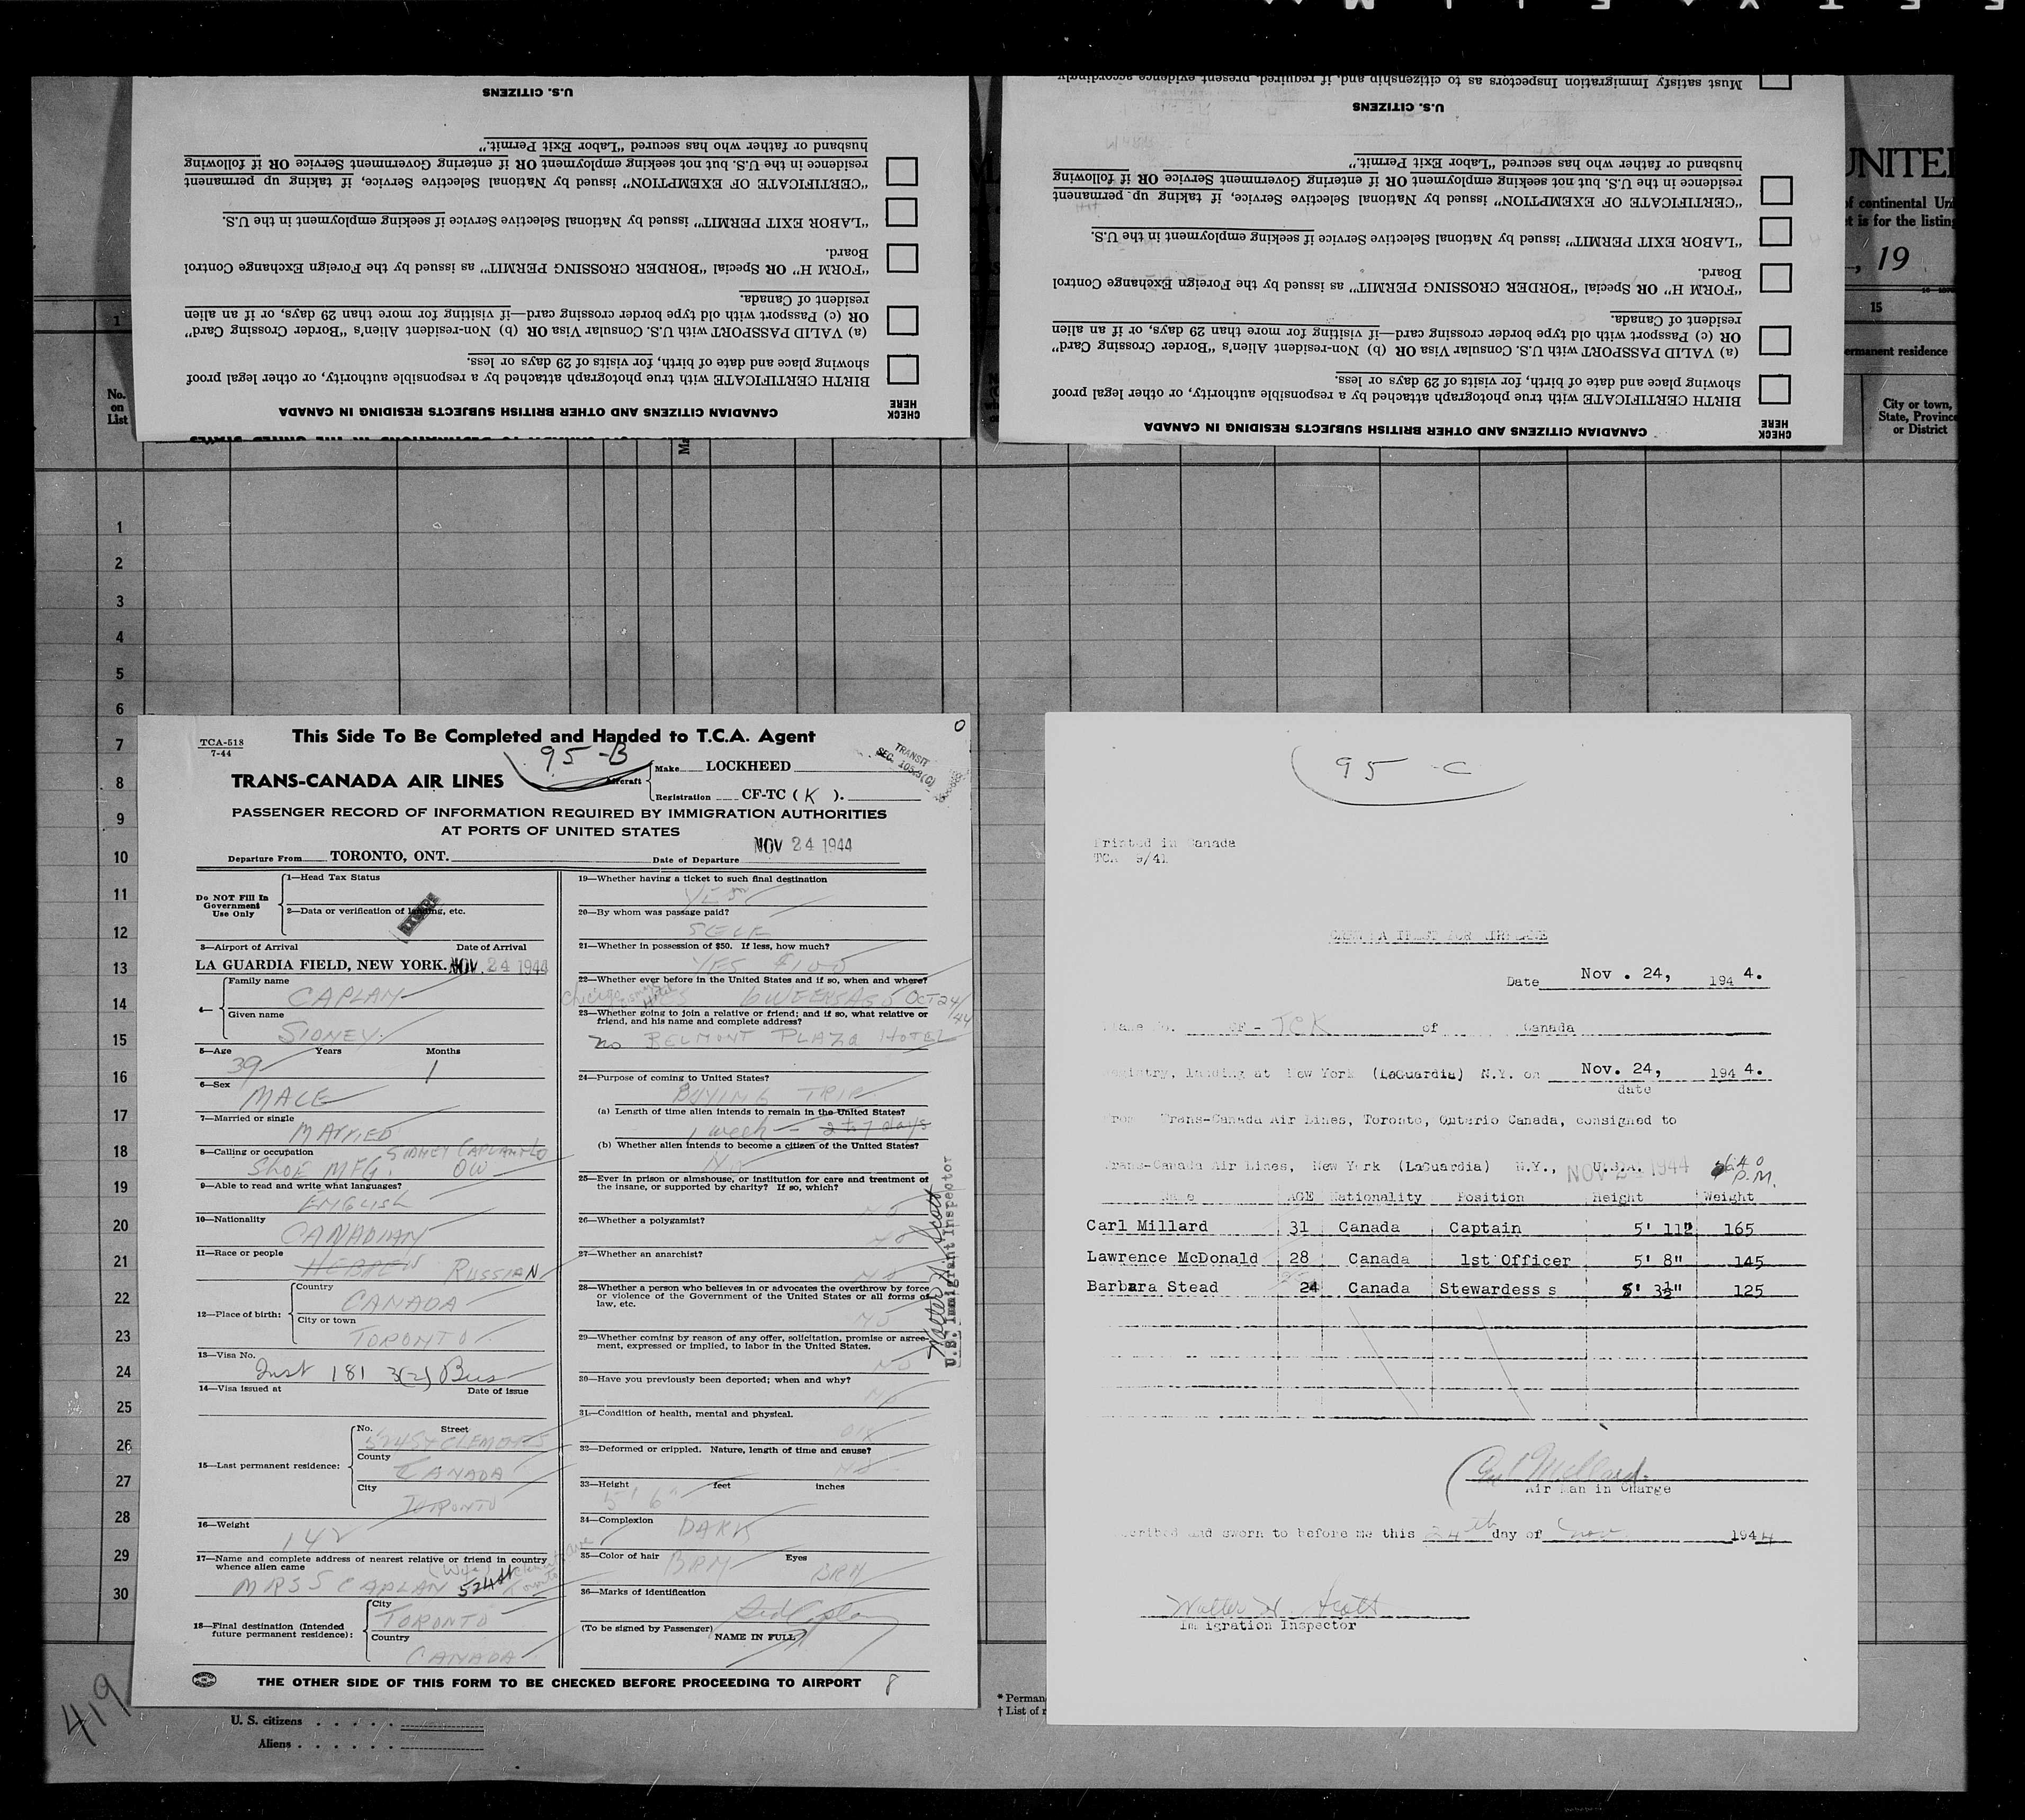 U.S. CITIZENS
husband or father who has secured "Labor Exit Permit."
residence in the U.S. but not seeking employment OR if entering Government Service OR if following
"CERTIFICATE OF EXEMPTION" issued by National Selective Service, if taking up permanent
"LABOR EXIT PERMIT" issued by National Selective Service if seeking employment in the U.S.
Board.
"FORM H" OR Special "BORDER CROSSING PERMIT" as issued by the Foreign Exchange Control
resident of Canada.
OR (c) Passport with old type border crossing card—if visiting for more than 29 days, or if an alien
(a) VALID PASSPORT with U.S. Consular Visa OR (b) Non-resident Alien's "Border Crossing Card"
showing place and date of birth, for visits of 29 days or less.
BIRTH CERTIFICATE with true photograph attached by a responsible authority, or other legal proof
CANADIAN CITIZENS AND OTHER BRITISH SUBJECTS RESIDING IN CANADA
CHECK HERE
Must satisfy Immigration Inspectors as to citizenship and, if required, present evidence accordingly
U.S. CITIZENS
husband or father who has secured "Labor Exit Permit."
residence in the U.S. but not seeking employment OR if entering Government Service OR if following
"CERTIFICATE OF EXEMPTION" issued by National Selective Service, if taking up permanent
"LABOR EXIT PERMIT" issued by National Selective Service if seeking employment in the U.S.
Board.
"FORM H" OR Special "BORDER CROSSING PERMIT" as issued by the Foreign Exchange Control
resident of Canada.
OR (c) Passport with old type border crossing card—if visiting for more than 29 days, or if an alien
(a) VALID PASSPORT with U.S. Consular Visa OR (b) Non-resident Alien's "Border Crossing Card"
showing place and date of birth, for visits of 29 days or less.
BIRTH CERTIFICATE with true photograph attached by a responsible authority, or other legal proof
CANADIAN CITIZENS AND OTHER BRITISH SUBJECTS RESIDING IN CANADA
CHECK HERE
UNITE
of continental Uni
t is for the listing
, 19
15
ermanent residence
City or town,
State, Province
or District
1
No.
on
List
1
2
3
4
5
6
7
8
9
10
11
12
13
14
15
16
17
18
19
20
21
22
23
24
25
26
27
28
29
30
TCA-518
7-44
This Side To Be Completed and Handed to T.C.A. Agent
0
95-B
TRANSIT
TRANS-CANADA AIR LINES
Aircraft
Make LOCKHEED
Registration CF-TC ( K ).
PASSENGER RECORD OF INFORMATION REQUIRED BY IMMIGRATION AUTHORITIES
AT PORTS OF UNITED STATES
Departure From TORONTO, ONT. Date of Departure NOV 24 1944
Do NOT Fill In
Government
Use Only
1—Head Tax Status
2—Data or verification of landing, etc.
3—Airport of Arrival Date of Arrival
LA GUARDIA FIELD, NEW YORK. NOV. 24 1944
4—
Family name
CAPLAN
Given name
SIDNEY
5—Age Years Months
39 1
6—Sex
MALE
7—Married or single
MARRIED
8—Calling or occupation SIDNEY CAPLAN LTD
SHOE MFG. OW
9—Able to read and write what languages?
ENGLISH
10—Nationality
CANADIAN
11—Race or people
HEBREW RUSSIAN
12—Place of birth:
Country
CANADA
City or town
TORONTO
13—Visa No.
Inst 181 3(2) Bus
14—Visa issued at Date of issue
15—Last permanent residence:
No. Street
County
CANADA
City
TORONTO
16—Weight
142
17—Name and complete address of nearest relative or friend in country
whence alien came (Wife)
MRS S CAPLAN 524
18—Final destination (Intended
future permanent residence):
City
TORONTO
Country
CANADA
19—Whether having a ticket to such final destination
YES
20—By whom was passage paid?
SELF
21—Whether in possession of $50. If less, how much?
YES $100
22—Whether ever before in the United States and if so, when and where?
Chicago Hotel 6 WEEKS AGO OCT 24/44
23—Whether going to join a relative or friend; and if so, what relative or
friend, and his name and complete address?
no BELMONT PLAZA HOTEL
24—Purpose of coming to United States?
BUYING TRIP
(a) Length of time alien intends to remain in the United States?
1 week — 2 to 7 days
(b) Whether alien intends to become a citizen of the United States?
NO
25—Ever in prison or almshouse, or institution for care and treatment of
the insane, or supported by charity? If so, which?
NO
26—Whether a polygamist?
NO
27—Whether an anarchist?
NO
28—Whether a person who believes in or advocates the overthrow by force
or violence of the Government of the United States or all forms of
law, etc.
NO
29—Whether coming by reason of any offer, solicitation, promise or agree-
ment, expressed or implied, to labor in the United States.
NO
30—Have you previously been deported; when and why?
NO
31—Condition of health, mental and physical.
OK
32—Deformed or crippled. Nature, length of time and cause?
NO
33—Height feet inches
5' 6"
34—Complexion DARK
35—Color of hair BRN Eyes BRN
36—Marks of identification
Sid Caplan
(To be signed by Passenger) NAME IN FULL
Walter H. Scott
U.S. Immigrant Inspector
THE OTHER SIDE OF THIS FORM TO BE CHECKED BEFORE PROCEEDING TO AIRPORT
8
419
U. S. citizens
Aliens
* Perman
† List of r
95-C
Printed in Canada
TCA 9/41
Date Nov . 24, 194 4.
CF - TCK of Canada
landing at New York (LaGuardia) N.Y. on Nov. 24, 194 4.
date
Trans-Canada Air Lines, Toronto, Ontario Canada, consigned to
Trans-Canada Air Lines, New York (LaGuardia) N.Y., U.S.A. NOV 24 1944 P.M.
Name AGE Nationality Position Height Weight
Carl Millard 31 Canada Captain 5' 11" 165
Lawrence McDonald 28 Canada 1st Officer 5' 8" 145
Barbara Stead 24 Canada Stewardess s 5' 3½" 125
Carl Millard
Air Man in Charge
and sworn to before me this 24th day of Nov 1944
Walter H. Scott
Immigration Inspector